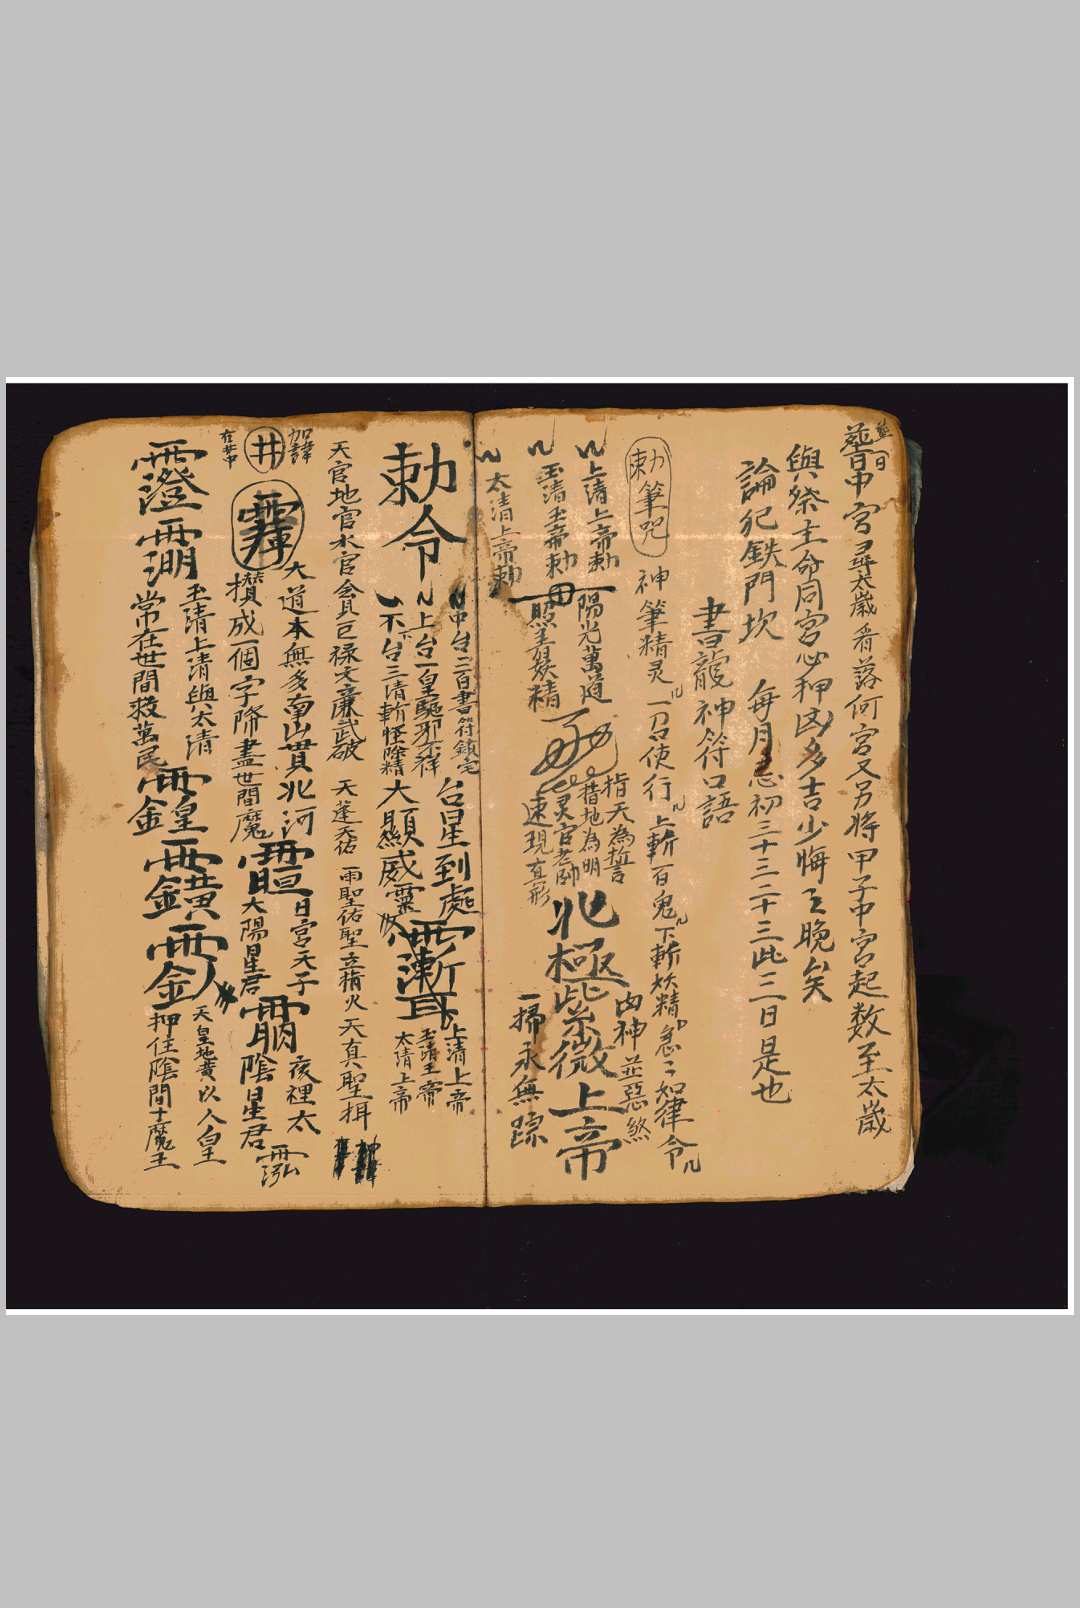 中宮尋太歲看落何宮又另將甲子中宮起数至太歲
與祭主命同宮必押凶多吉少悔之晚矣
論犯鉄門坎 每月忌初三十三二十三此三日是也
書龍神符口語
勅筆咒
神筆精灵 一召使行 上斬百鬼 下斬妖精 急二如律令
上清上帝勅 陽光萬道
指天為誓
凶神並惡煞
玉清玉帝勅
措地為明
太清上帝勅
灵官老帥
速現真形
北極紫微上帝
一掃永無踪
勅令
中台二百書符鎮宅
上台一皇驅邪不祥
下台三清斬怪除精
台星到處
大顯威靈
上清上帝
玉清玉帝
太清上帝
天官地官水官會 巨禄文廉武破 天蓬天佑 雨聖佑聖立指火 天真聖揖
加諱
井
在井中
大道本無多南山貫北河
攢成一個字降盡世間魔
日宮天子
大陽星君
夜裡太
陰星君
玉清上清與太清
常在世間救萬民
天皇地黄以人皇
押住陰間十魔王